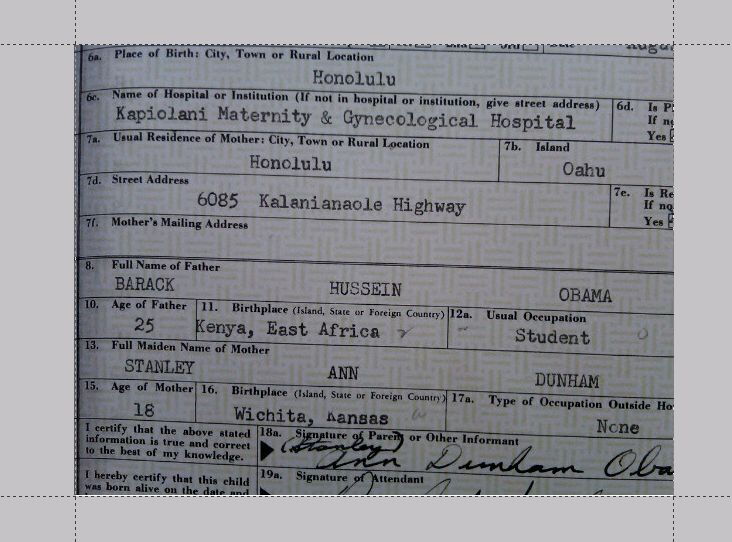 6a. Place of Birth: City, Town or Rural Location
Honolulu
6c. Name of Hospital or Institution (If not in hospital or institution, give street address) 6d. Is
Kapiolani Maternity & Gynecological Hospital If
Yes
7a. Usual Residence of Mother: City, Town or Rural Location 7b. Island
Honolulu Oahu
7d. Street Address 7e. Is
6085 Kalanianaole Highway If
7f. Mother's Mailing Address Yes
8. Full Name of Father
BARACK HUSSEIN OBAMA
10. Age of Father 11. Birthplace (Island, State or Foreign Country) 12a. Usual Occupation
25 Kenya, East Africa Student
13. Full Maiden Name of Mother
STANLEY ANN DUNHAM
15. Age of Mother 16. Birthplace (Island, State or Foreign Country) 17a. Type of Occupation Outside Ho
18 Wichita, Kansas None
I certify that the above stated 18a. Signature of Parent or Other Informant
information is true and correct (Stanley)
to the best of my knowledge. Ann Dunham Oba
I hereby certify that this child 19a. Signature of Attendant
was born alive on the date and